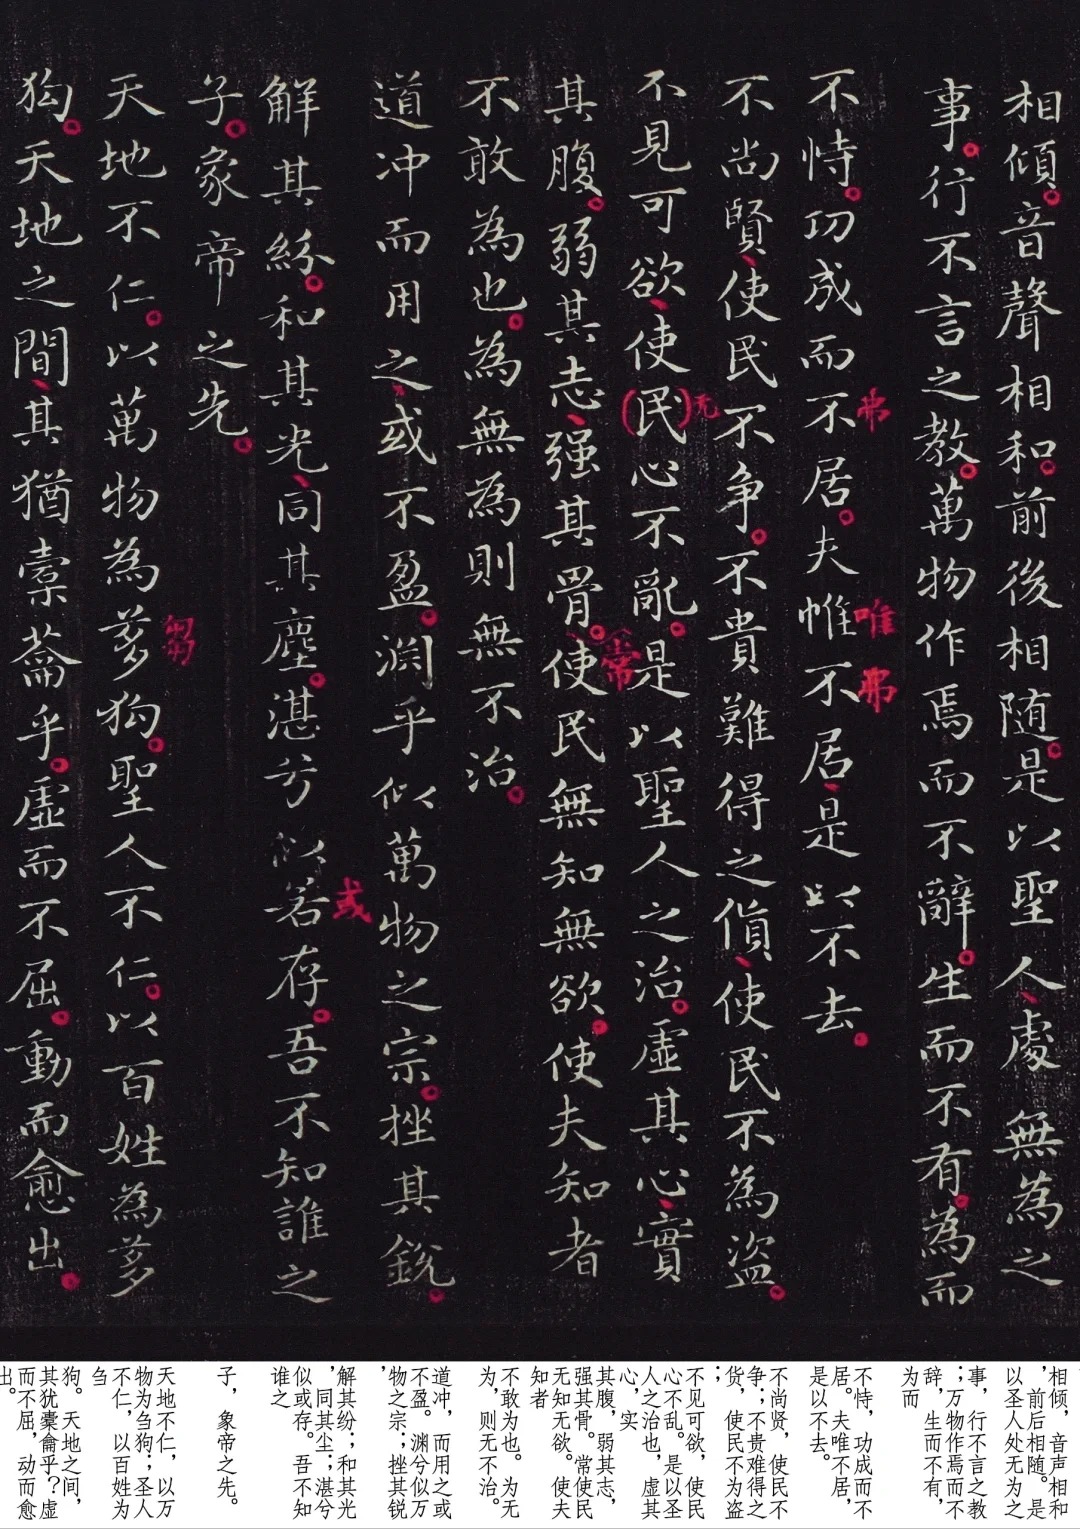 相傾音聲相和前後相随是以聖人處無為之
事行不言之教萬物作焉而不辭生而不有為而
不恃功成而不居夫惟不居是以不去
弗
唯
弗
不尚賢使民不争不貴難得之貨使民不為盗
不見可欲使民心不亂是以聖人之治虛其心實
无
其腹弱其志强其骨使民無知無欲使夫知者
常
不敢為也為無為則無不治
道冲而用之或不盈渊乎似萬物之宗挫其銳
解其紛和其光同其塵湛兮似若存吾不知誰之
或
子象帝之先
天地不仁以萬物為芻狗聖人不仁以百姓為芻
芻
狗天地之間其猶橐籥乎虛而不屈動而愈出
相倾，音声相和
，前后相随。是
以圣人处无为之
事，行不言之教
；万物作焉而不
辞，生而不有，
为而
不恃，功成而不
居。夫唯不居，
是以不去。
不尚贤，使民不
争；不贵难得之
货，使民不为盗
；
不见可欲，使民
心不乱。是以圣
人之治也，虚其
心，实
其腹，弱其志，
强其骨。常使民
无知无欲。使夫
知者
不敢为也。为无
为，则无不治。
道冲，而用之或
不盈。渊兮似万
物之宗；挫其锐
，
解其纷；和其光
，同其尘；湛兮
似或存。吾不知
谁之
子，象帝之先。
天地不仁，以万
物为刍狗；圣人
不仁，以百姓为
刍
狗。天地之间，
其犹橐龠乎？虚
而不屈，动而愈
出。